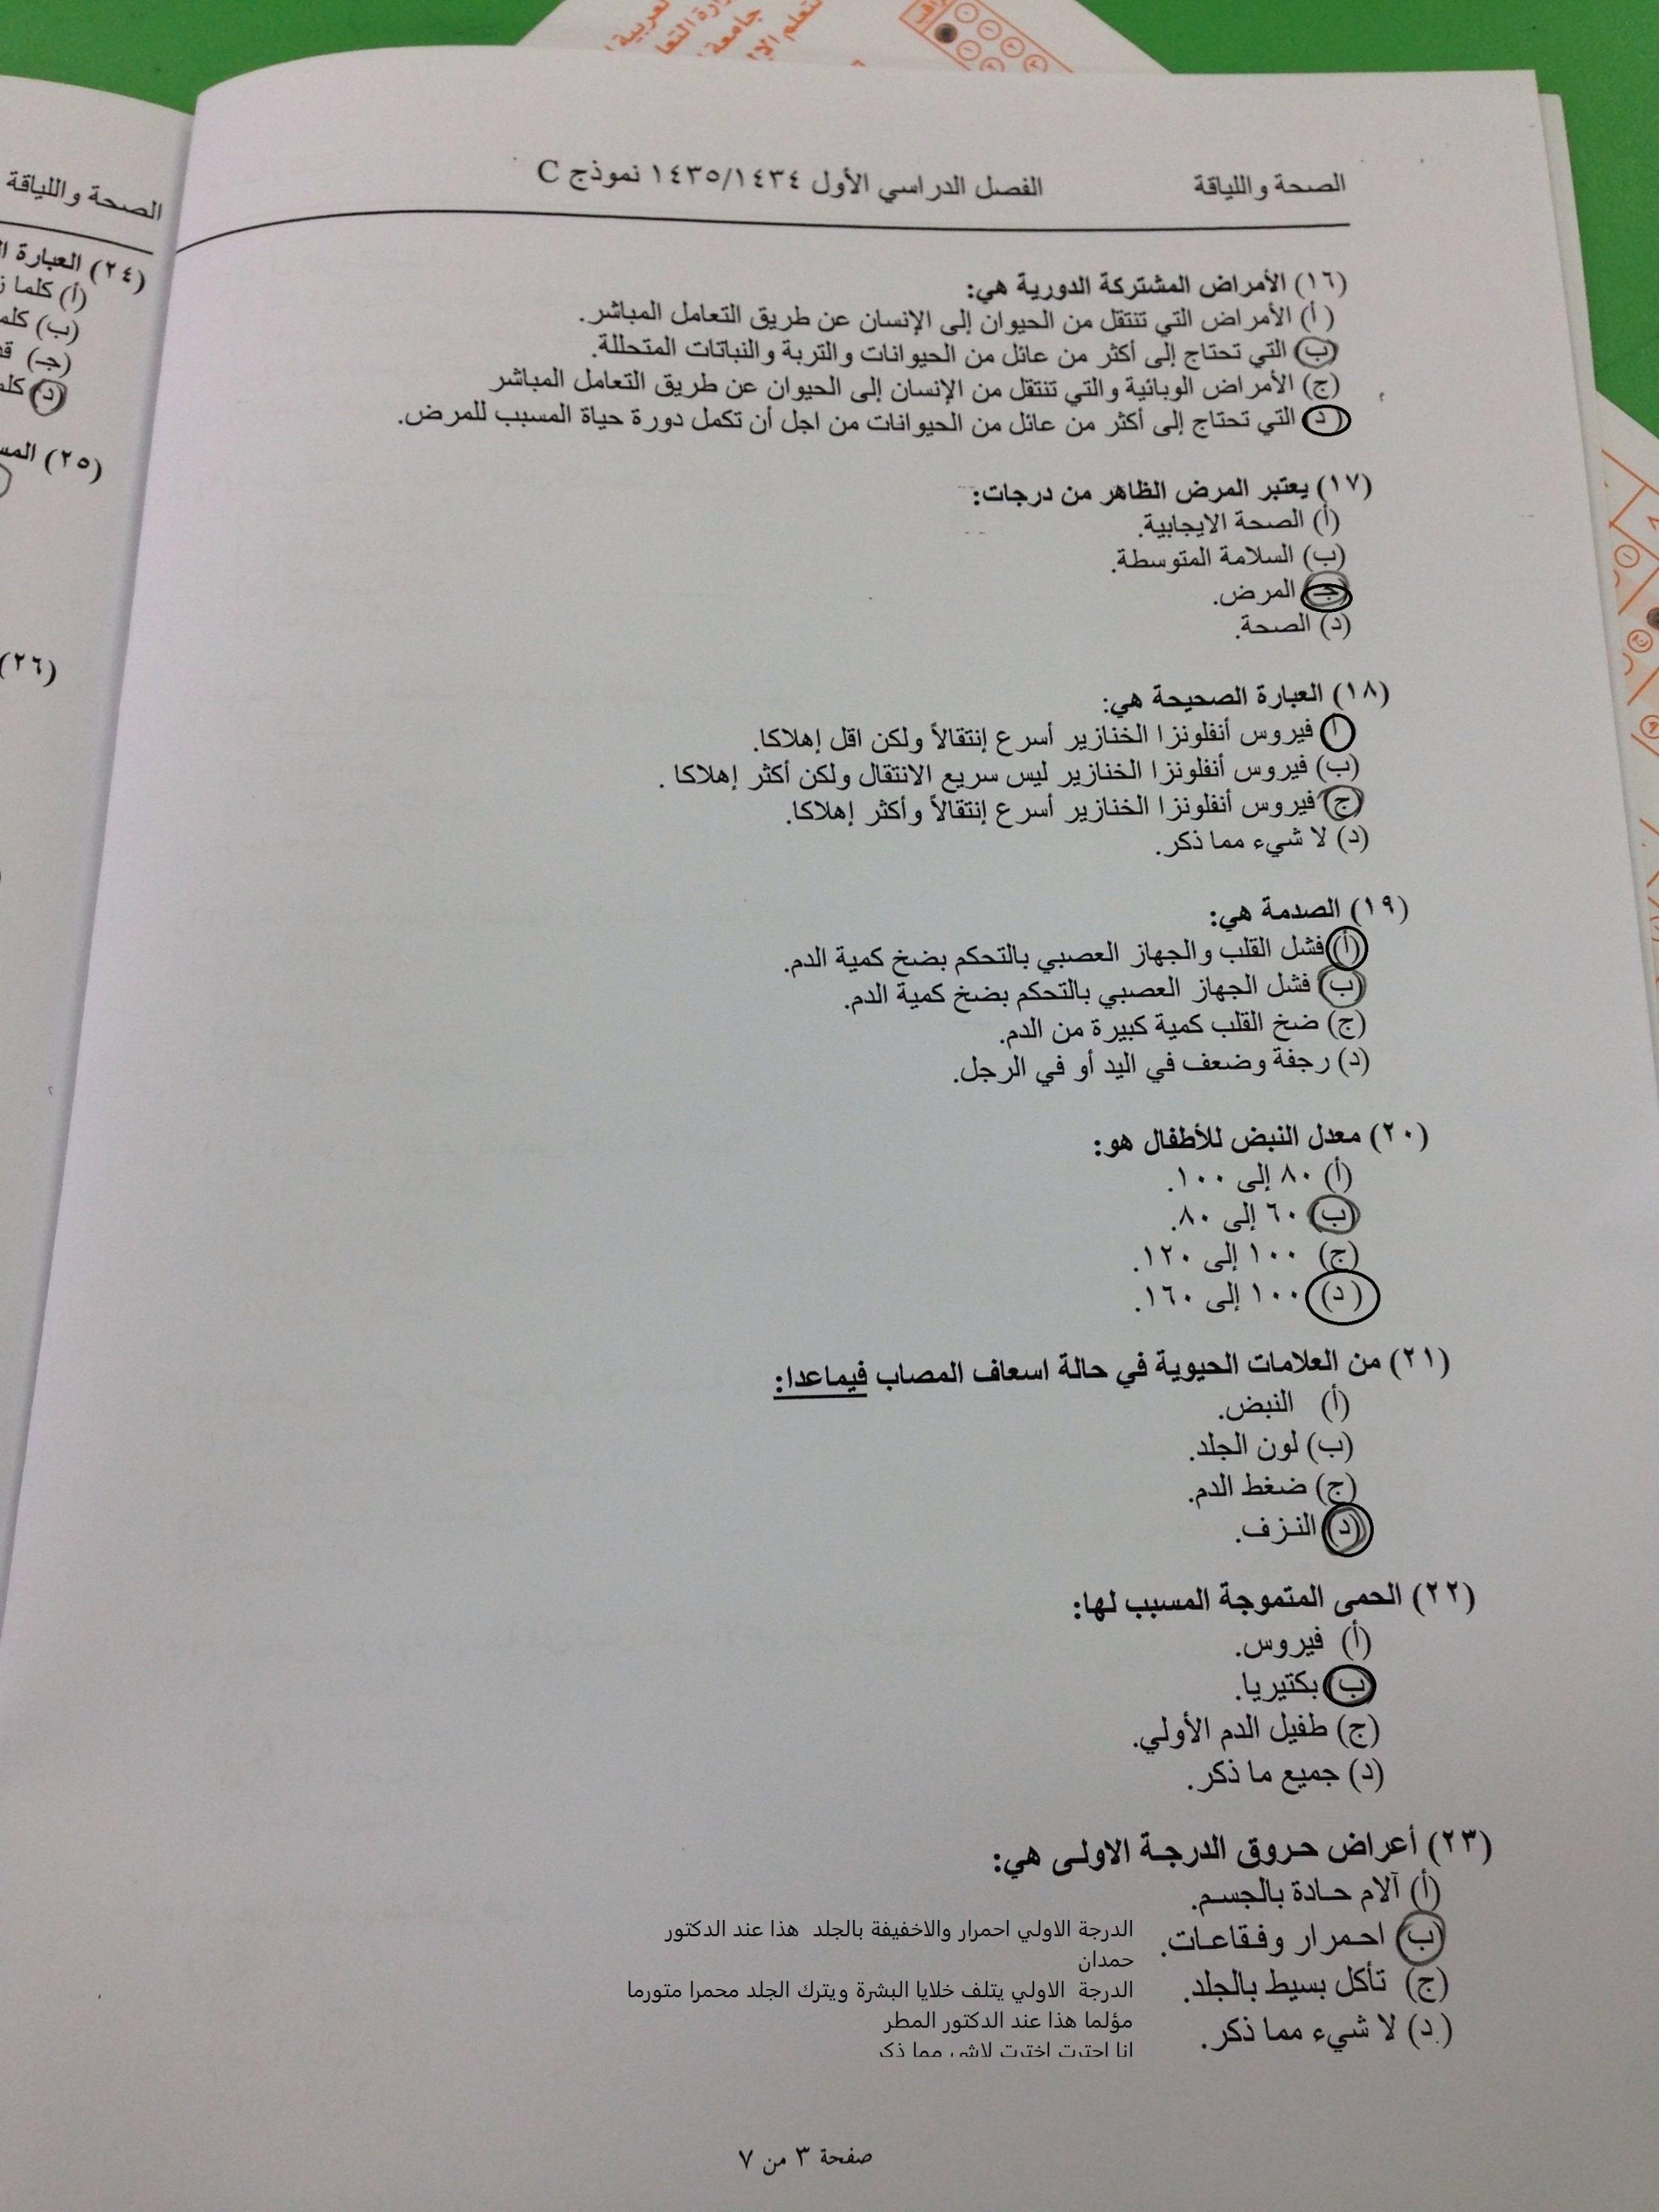 الصحة واللياقة الفصل الدراسي الأول ١٤٣٥/١٤٣٤ نموذج C
(١٦) الأمراض المشتركة الدورية هي:
(أ) الأمراض التي تنتقل من الحيوان إلى الإنسان عن طريق التعامل المباشر.
(ب) التي تحتاج إلى أكثر من عائل من الحيوانات والتربة والنباتات المتحللة.
(ج) الأمراض الوبائية والتي تنتقل من الإنسان إلى الحيوان عن طريق التعامل المباشر
(د) التي تحتاج إلى أكثر من عائل من الحيوانات من اجل أن تكمل دورة حياة المسبب للمرض.
(١٧) يعتبر المرض الظاهر من درجات:
(أ) الصحة الايجابية.
(ب) السلامة المتوسطة.
(جـ) المرض.
(د) الصحة.
(١٨) العبارة الصحيحة هي:
(أ) فيروس أنفلونزا الخنازير أسرع إنتقالاً ولكن اقل إهلاكا.
(ب) فيروس أنفلونزا الخنازير ليس سريع الانتقال ولكن أكثر إهلاكا .
(ج) فيروس أنفلونزا الخنازير أسرع إنتقالاً وأكثر إهلاكا.
(د) لا شيء مما ذكر.
(١٩) الصدمة هي:
(أ) فشل القلب والجهاز العصبي بالتحكم بضخ كمية الدم.
(ب) فشل الجهاز العصبي بالتحكم بضخ كمية الدم.
(ج) ضخ القلب كمية كبيرة من الدم.
(د) رجفة وضعف في اليد أو في الرجل.
(٢٠) معدل النبض للأطفال هو:
(أ) ٨٠ إلى ١٠٠.
(ب) ٦٠ إلى ٨٠.
(ج) ١٠٠ إلى ١٢٠.
(د) ١٠٠ إلى ١٦٠.
(٢١) من العلامات الحيوية في حالة اسعاف المصاب فيماعدا:
(أ) النبض.
(ب) لون الجلد.
(ج) ضغط الدم.
(د) النزف.
(٢٢) الحمى المتموجة المسبب لها:
(أ) فيروس.
(ب) بكتيريا.
(ج) طفيل الدم الأولي.
(د) جميع ما ذكر.
(٢٣) أعراض حروق الدرجة الاولى هي:
(أ) آلام حادة بالجسم.
(ب) احمرار وفقاعات.
(ج) تأكل بسيط بالجلد.
(د) لا شيء مما ذكر.
الدرجة الاولي احمرار والاخفيفة بالجلد هذا عند الدكتور
حمدان
الدرجة الاولي يتلف خلايا البشرة ويترك الجلد محمرا متورما
مؤلما هذا عند الدكتور المطر
انا احترت اخترت لاشي مما ذكر
صفحة ٣ من ٧
الصحة واللياقة
(٢٤) العبارة
(أ) كلما
(ب)
(جـ)
(د)
(٢٥)
(٢٦)